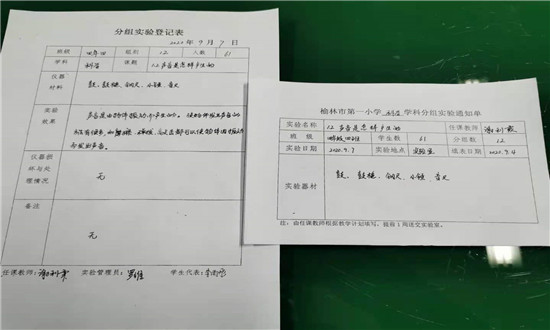 分组实验登记表
2020年9月7日
班级 四年四 组别 12 人数 61
学科 科学 课题 1.2声音是怎样产生的
仪器
材料
鼓、鼓槌、钢尺、小锤、音叉
实验
效果
声音是由物体振动产生的。
仪器损
坏与处
理情况
无
备注
无
任课教师： 实验管理员： 学生代表：
榆林市第一小学 科学 学科分组实验通知单
实验名称 1.2 声音是怎样产生的 任课教师
班级 四年级四班 学生数 61 分组数 12
实验日期 2020.9.7 实验地点 实验室 通知日期 2020.9.4
实验器材 鼓、鼓槌、钢尺、小锤、音叉
注：由任课教师根据教学计划填写，提前1周送交实验室。